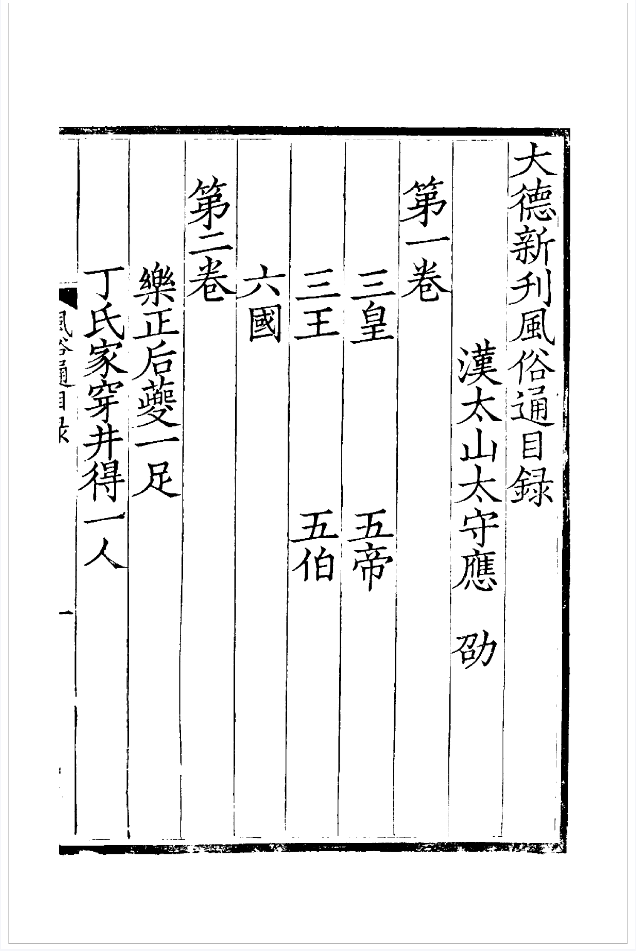 大德新刊風俗通目録
漢太山太守應 劭
第一卷
三皇 五帝
三王 五伯
六國
第二卷
樂正后夔一足
丁氏家穿井得一人
風俗通目录
一